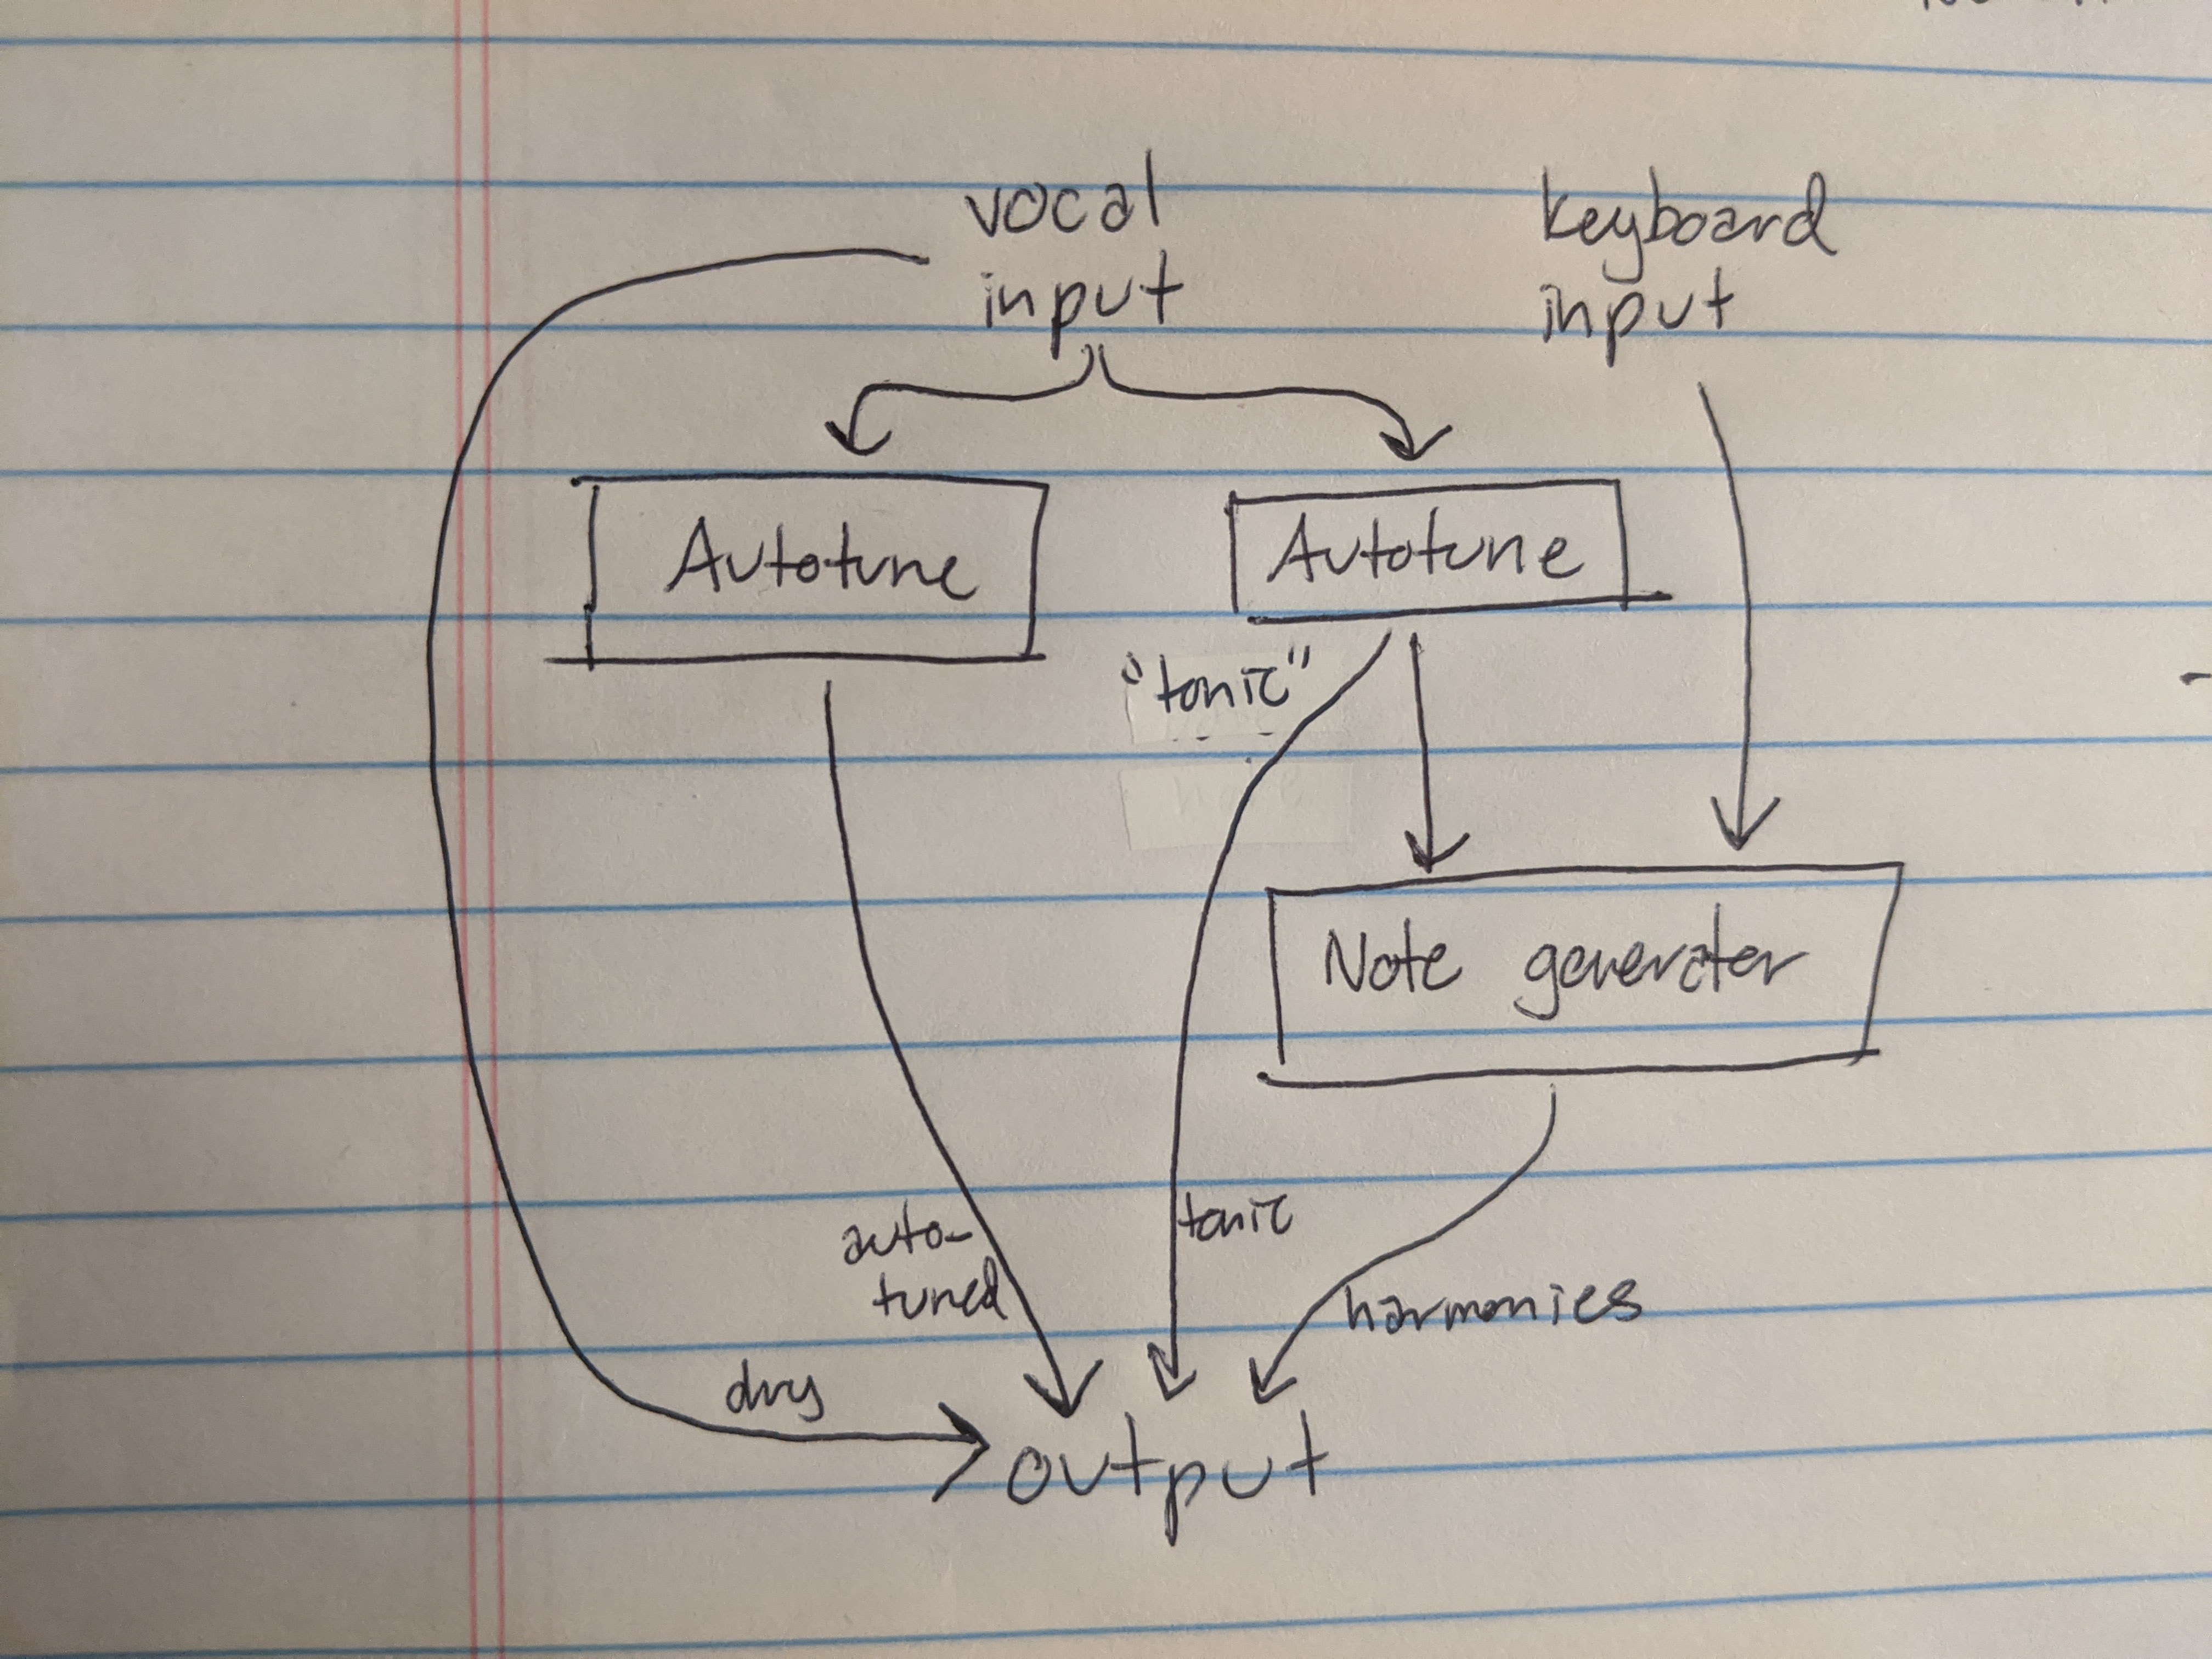 vocal
input
keyboard
input
Autotune
Autotune
"tonic"
Note generater
auto-
tuned
tonic
harmonies
dry
output